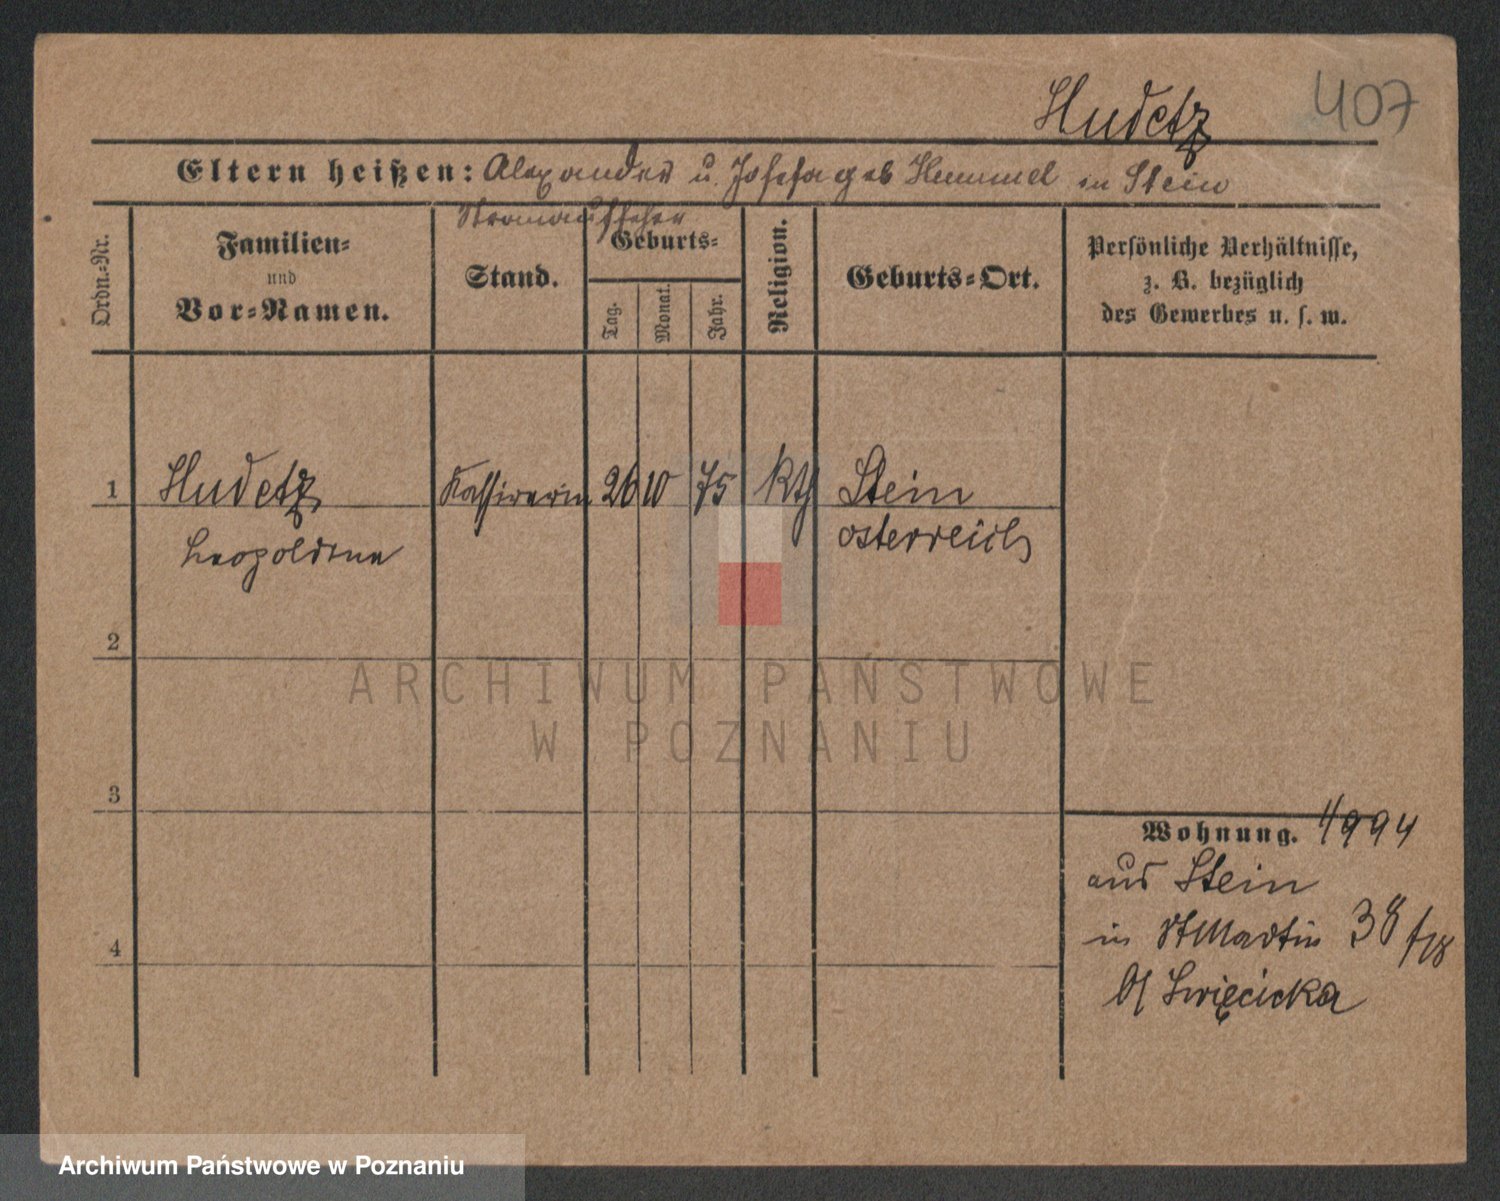 Hudetz 407
Eltern heißen: Alexander u. Josefa geb Hummel in Stein
Stromaufseher
Ordn.-Nr.
Familien-
und
Vor-Namen.
Stand.
Geburts-
Tag.
Monat.
Jahr.
Religion.
Geburts-Ort.
Persönliche Verhältnisse,
z. B. bezüglich
des Gewerbes u. s. w.
1 Hudetz Kassirerin 26 10 75 kth Stein
Leopoldine österreich
2
3
4
Wohnung. 4994
aus Stein
in St Martin 38
b/ Swięcicka
ARCHIWUM PAŃSTWOWE
W POZNANIU
Archiwum Państwowe w Poznaniu